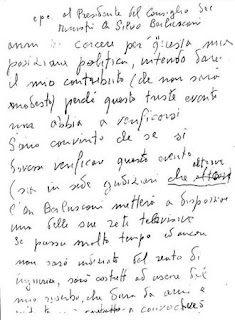 e p.c. al Presidente del Consiglio dei
Ministri Silvio Berlusconi
anni di carcere per questa mia
posizione politica, intendo dare
il mio contributo (che non sarà
modesto) perché questo triste evento
non abbia a verificarsi
Sono convinto che se si
dovesse verificare questo evento
(sia in sede giudiziaria che altrove
l'on Berlusconi metterà a disposizione
una delle sue reti televisive
Se passa molto tempo ed ancora
non sarò indiziato del reato di
ingiuria, sarò costretto ad uscire dal
mio riserbo, che dura da anni e